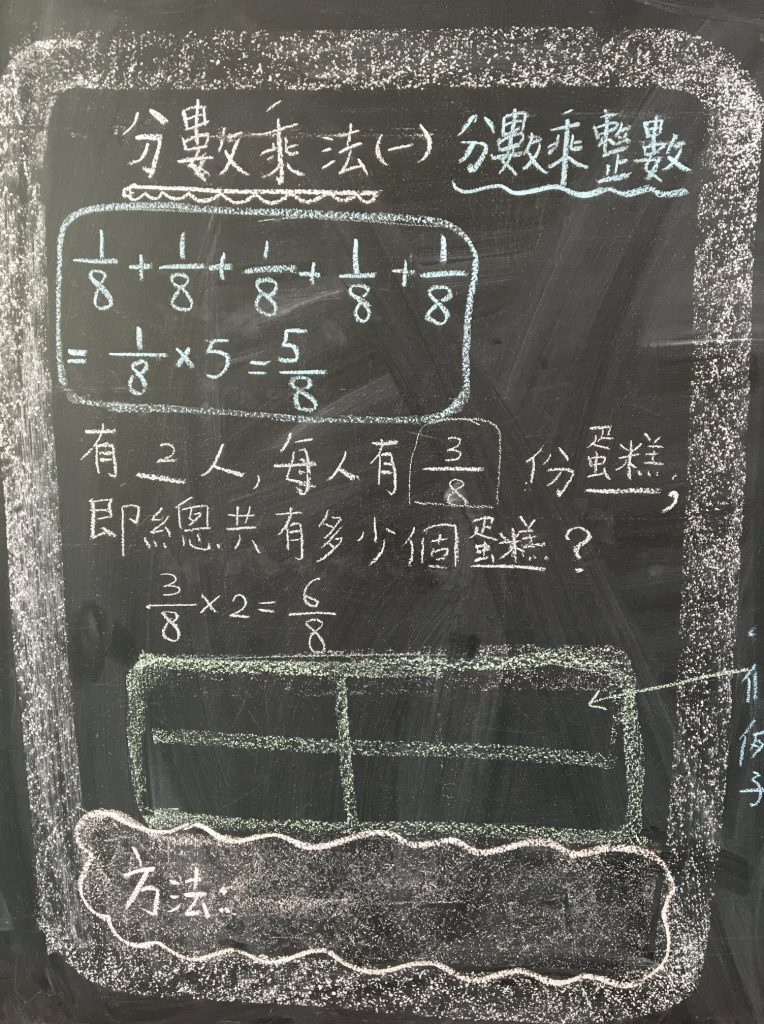 分數乘法(一) 分數乘整數
1/8 + 1/8 + 1/8 + 1/8 + 1/8
= 1/8 × 5 = 5/8
有2人,每人有 3/8 份蛋糕;
即總共有多少個蛋糕?
3/8 × 2 = 6/8
例子
方法: